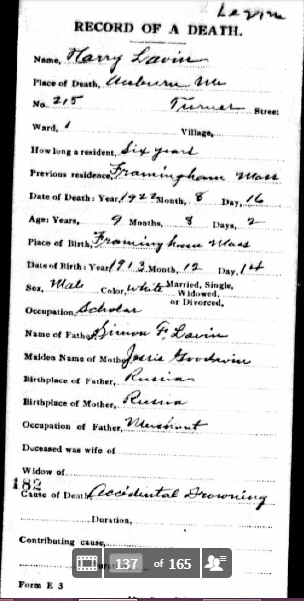 Levin
RECORD OF A DEATH.
Name, Harry Lavin
Place of Death, Auburn Me
No. 215 Turner Street
Ward, 1 Village,
How long a resident, Six years
Previous residence, Framingham Mass
Date of Death: Year, 1922 Month, 8 Day, 16
Age: Years, 9 Months, 8 Days, 2
Place of Birth, Framingham Mass
Date of Birth: Year, 1913 Month, 12 Day, 14
Sex, Male Color, White Married, Single,
Widowed,
or Divorced,
Occupation, Scholar
Name of Father, Simon F. Lavin
Maiden Name of Mother, Josie Goodwin
Birthplace of Father, Russia
Birthplace of Mother, Russia
Occupation of Father, Merchant
Deceased was wife of
Widow of
182
Cause of Death, Accidental Drowning
Duration,
Contributing cause,
137 of 165
Form E 3